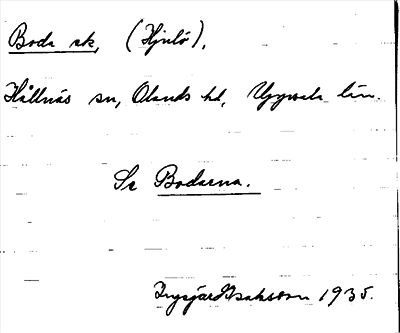 Boda sk, (Hjulö),
Hållnäs sn, Olands hd, Uppsala län.
Se Bodarna.
Ingegärd Isaksson 1935.